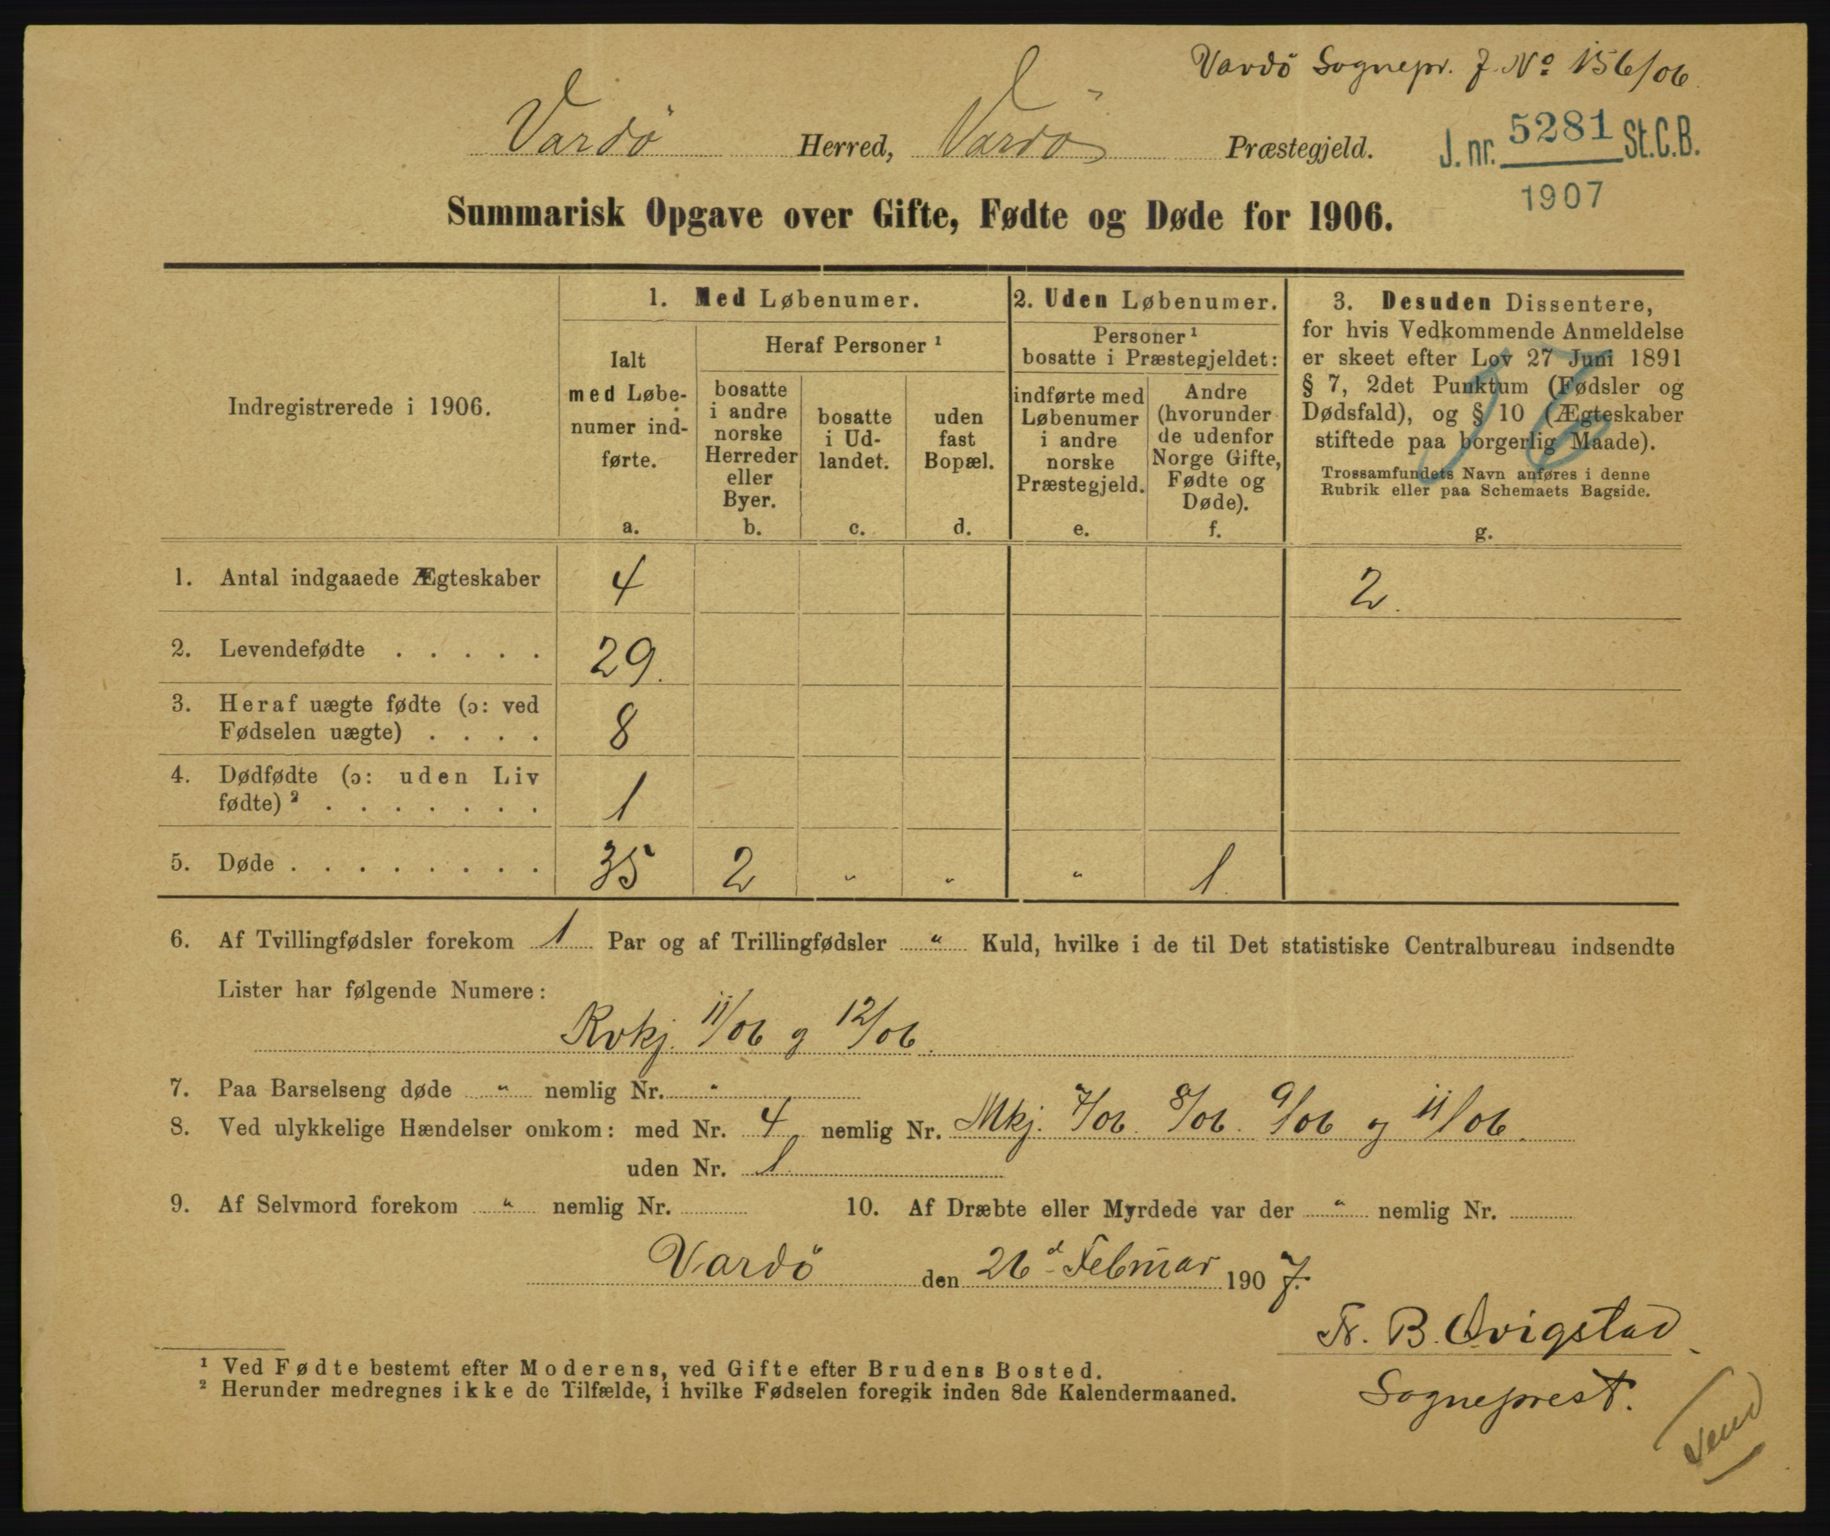 Vardö Sognepr. J. No 156/06.
Vardö Herred, Vardö Præstegjeld.
J. nr. 5281 St.C.B.
1907
Summarisk Opgave over Gifte, Fødte og Døde for 1906.
Indregistrerede i 1906.
1. Med Løbenumer.
Ialt
med Løbe-
numer ind-
førte.
a.
Heraf Personer ¹
bosatte
i andre
norske
Herreder
eller
Byer.
b.
bosatte
i Ud-
landet.
c.
uden
fast
Bopæl.
d.
2. Uden Løbenumer.
Personer ¹
bosatte i Præstegjeldet:
indførte med
Løbenumer
i andre
norske
Præstegjeld.
e.
Andre
(hvorunder
de udenfor
Norge Gifte,
Fødte og
Døde).
f.
3. Desuden Dissentere,
for hvis Vedkommende Anmeldelse
er skeet efter Lov 27 Juni 1891
§ 7, 2det Punktum (Fødsler og
Dødsfald), og § 10 (Ægteskaber
stiftede paa borgerlig Maade).
Trossamfundets Navn anføres i denne
Rubrik eller paa Schemaets Bagside.
g.
1. Antal indgaaede Ægteskaber 4 2.
2. Levendefødte . . . . . 29.
3. Heraf uægte fødte (ɔ: ved
Fødselen uægte) . . . . 8
4. Dødfødte (ɔ: uden Liv
fødte) ² . . . . . . . 1
5. Døde . . . . . . . . 35 2 " " " 1.
6. Af Tvillingfødsler forekom 1 Par og af Trillingfødsler " Kuld, hvilke i de til Det statistiske Centralbureau indsendte
Lister har følgende Numere:
Kvkj. 11/06 og 12/06.
7. Paa Barselseng døde " nemlig Nr. "
8. Ved ulykkelige Hændelser omkom: med Nr. 4 nemlig Nr. Mkj. 7/06. 8/06. 9/06 og 11/06.
uden Nr. 1
9. Af Selvmord forekom " nemlig Nr.
10. Af Dræbte eller Myrdede var der " nemlig Nr.
Vardö den 26d Februar 1907.
Fr. B. Qvigstad
Sogneprest.
¹ Ved Fødte bestemt efter Moderens, ved Gifte efter Brudens Bosted.
² Herunder medregnes ikke de Tilfælde, i hvilke Fødselen foregik inden 8de Kalendermaaned.